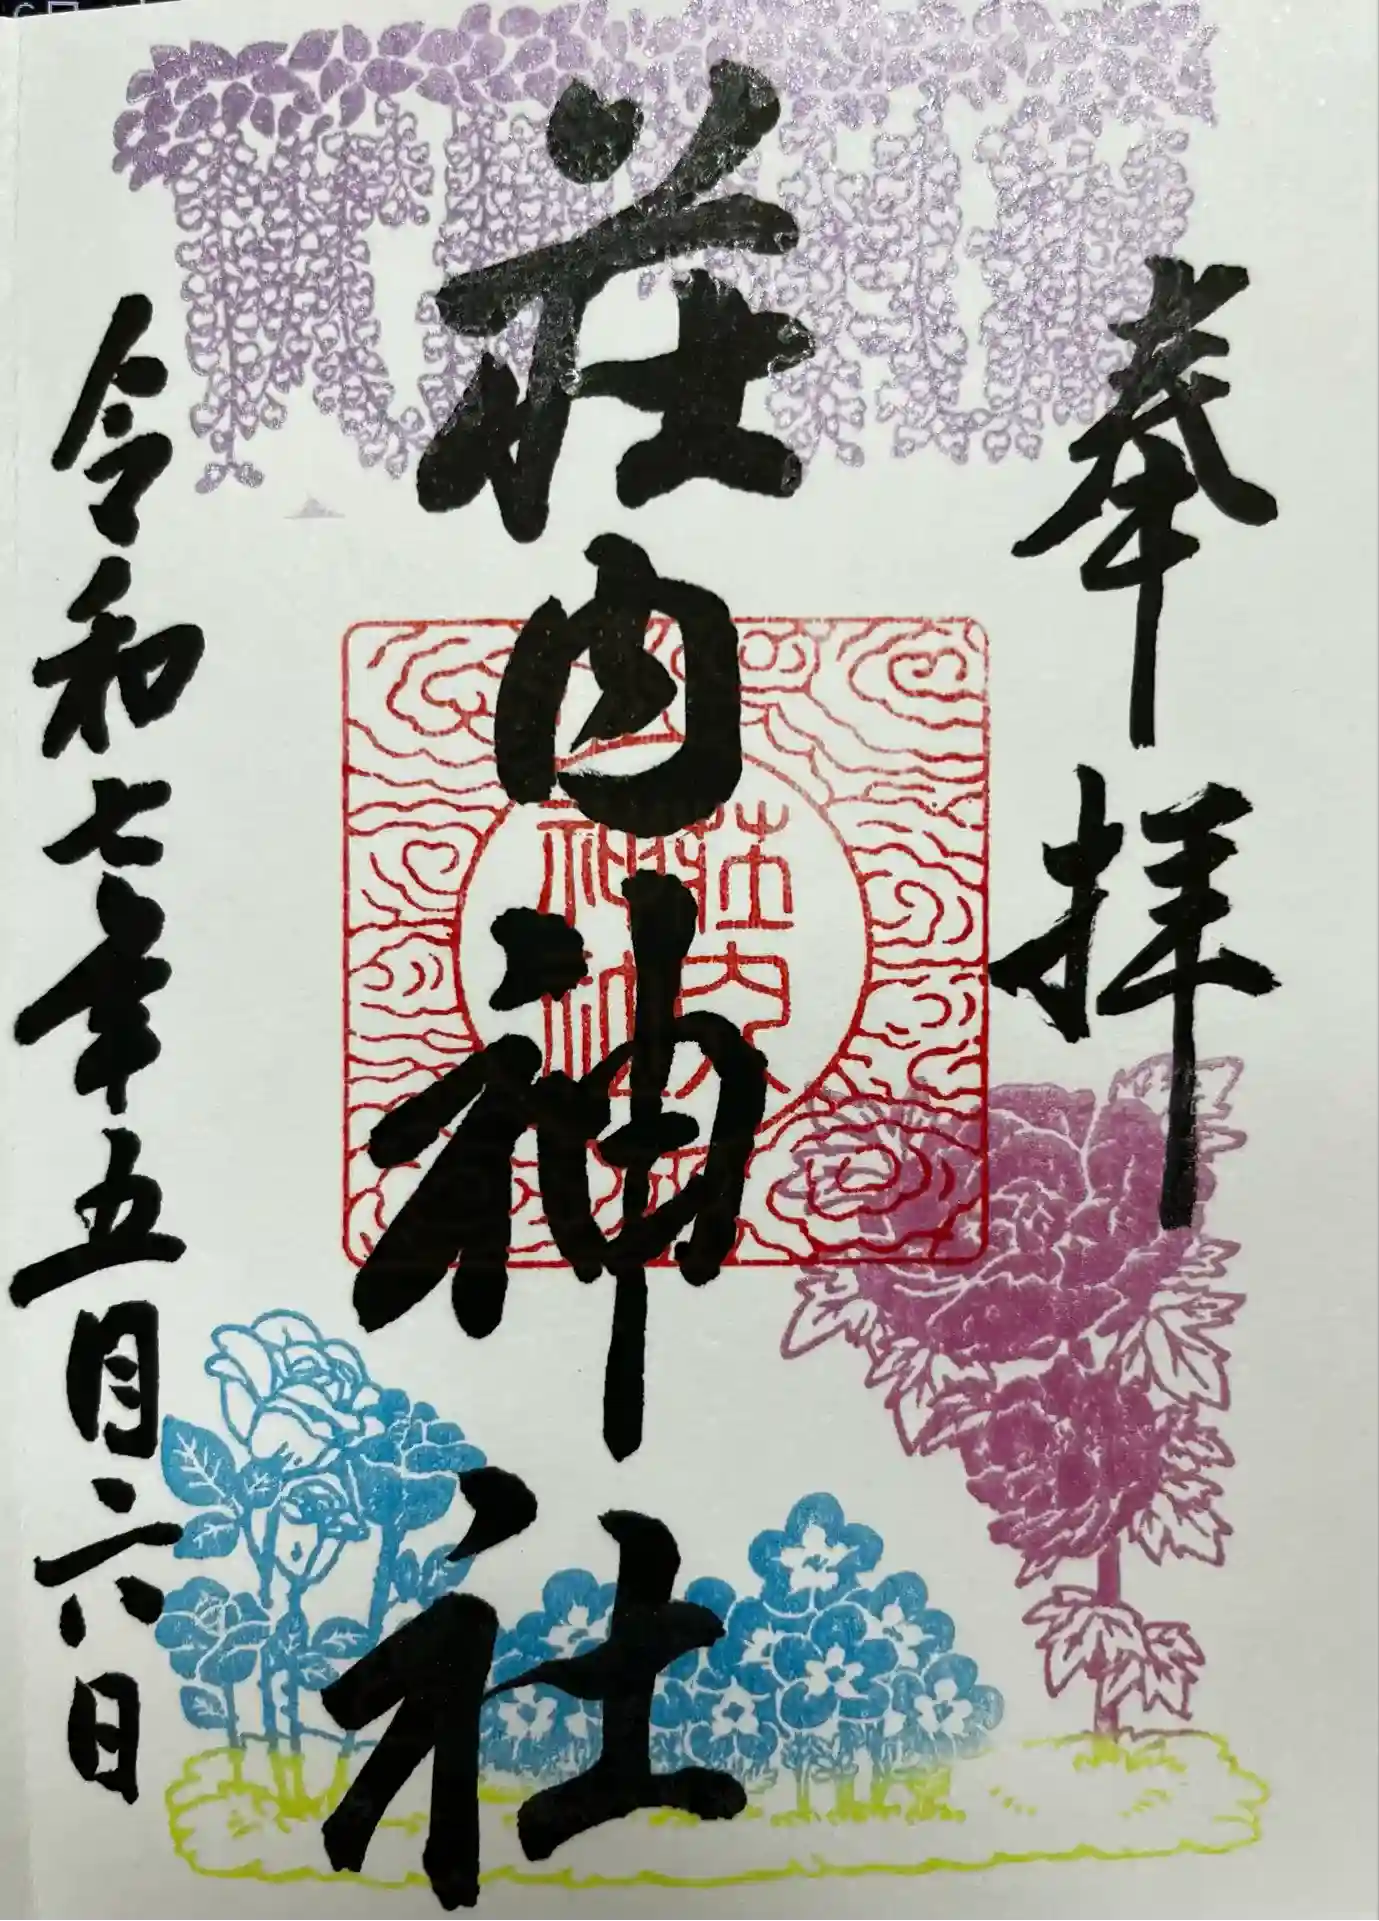 奉拝
荘内神社
荘内
神社
令和七年五月六日